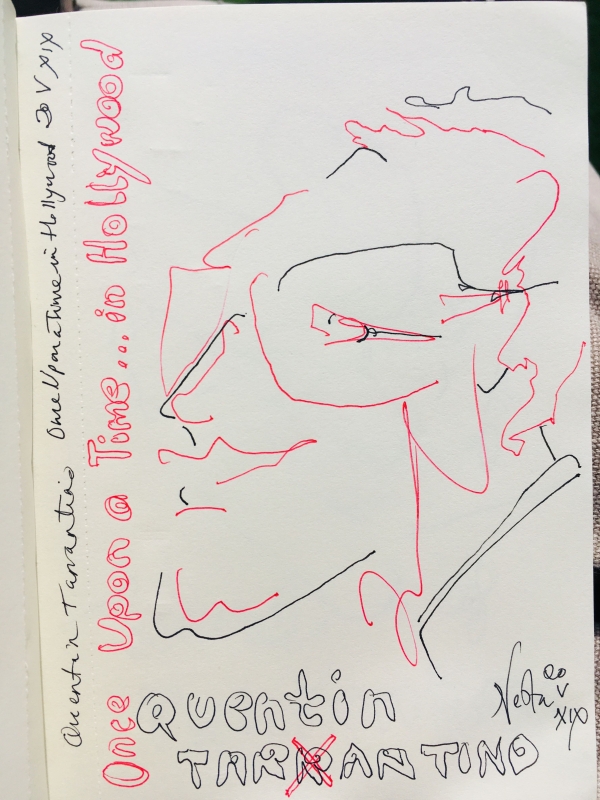 Quentin Tarantino Once Upon a time in Hollywood 20 V XIX
Once Upon a Time...in Hollywood
Quentin
TARRANTINO
20
V
XIX